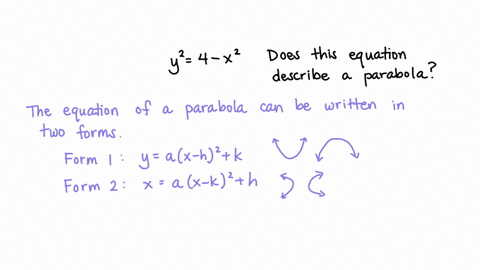 y² = 4 - x² Does this equation
describe a parabola?
The equation of a parabola can be written in
two forms.
Form 1: y = a(x-h)² + k
Form 2: x = a(x-k)² + h